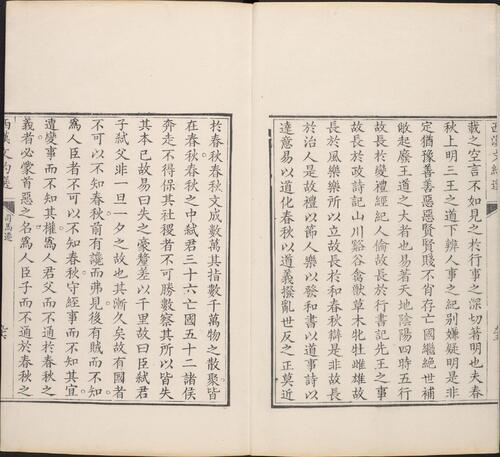 載之空言不如見之於行事之深切著明也夫春
秋上明三王之道下辨人事之紀別嫌疑明是非
定猶豫善善惡惡賢賢賤不肖存亡國繼絕世補
敝起廢王道之大者也易著天地陰陽四時五行
故長於變禮經紀人倫故長於行書記先王之事
故長於政詩記山川谿谷禽獸草木牝牡雌雄故
長於風樂樂所以立故長於和春秋辯是非故長
於治人是故禮以節人樂以發和書以道事詩以
達意易以道化春秋以道義撥亂世反之正莫近
於春秋春秋文成數萬其指數千萬物之散聚皆
在春秋春秋之中弒君三十六亡國五十二諸侯
奔走不得保其社稷者不可勝數察其所以皆失
其本已故易曰失之豪釐差以千里故曰臣弒君
子弒父非一旦一夕之故也其漸久矣故有國者
不可以不知春秋前有讒而弗見後有賊而不知
為人臣者不可以不知春秋守經事而不知其宜
遭變事而不知其權為人君父而不通於春秋之
義者必蒙首惡之名為人臣子而不通於春秋之
兩漢文
司馬遷